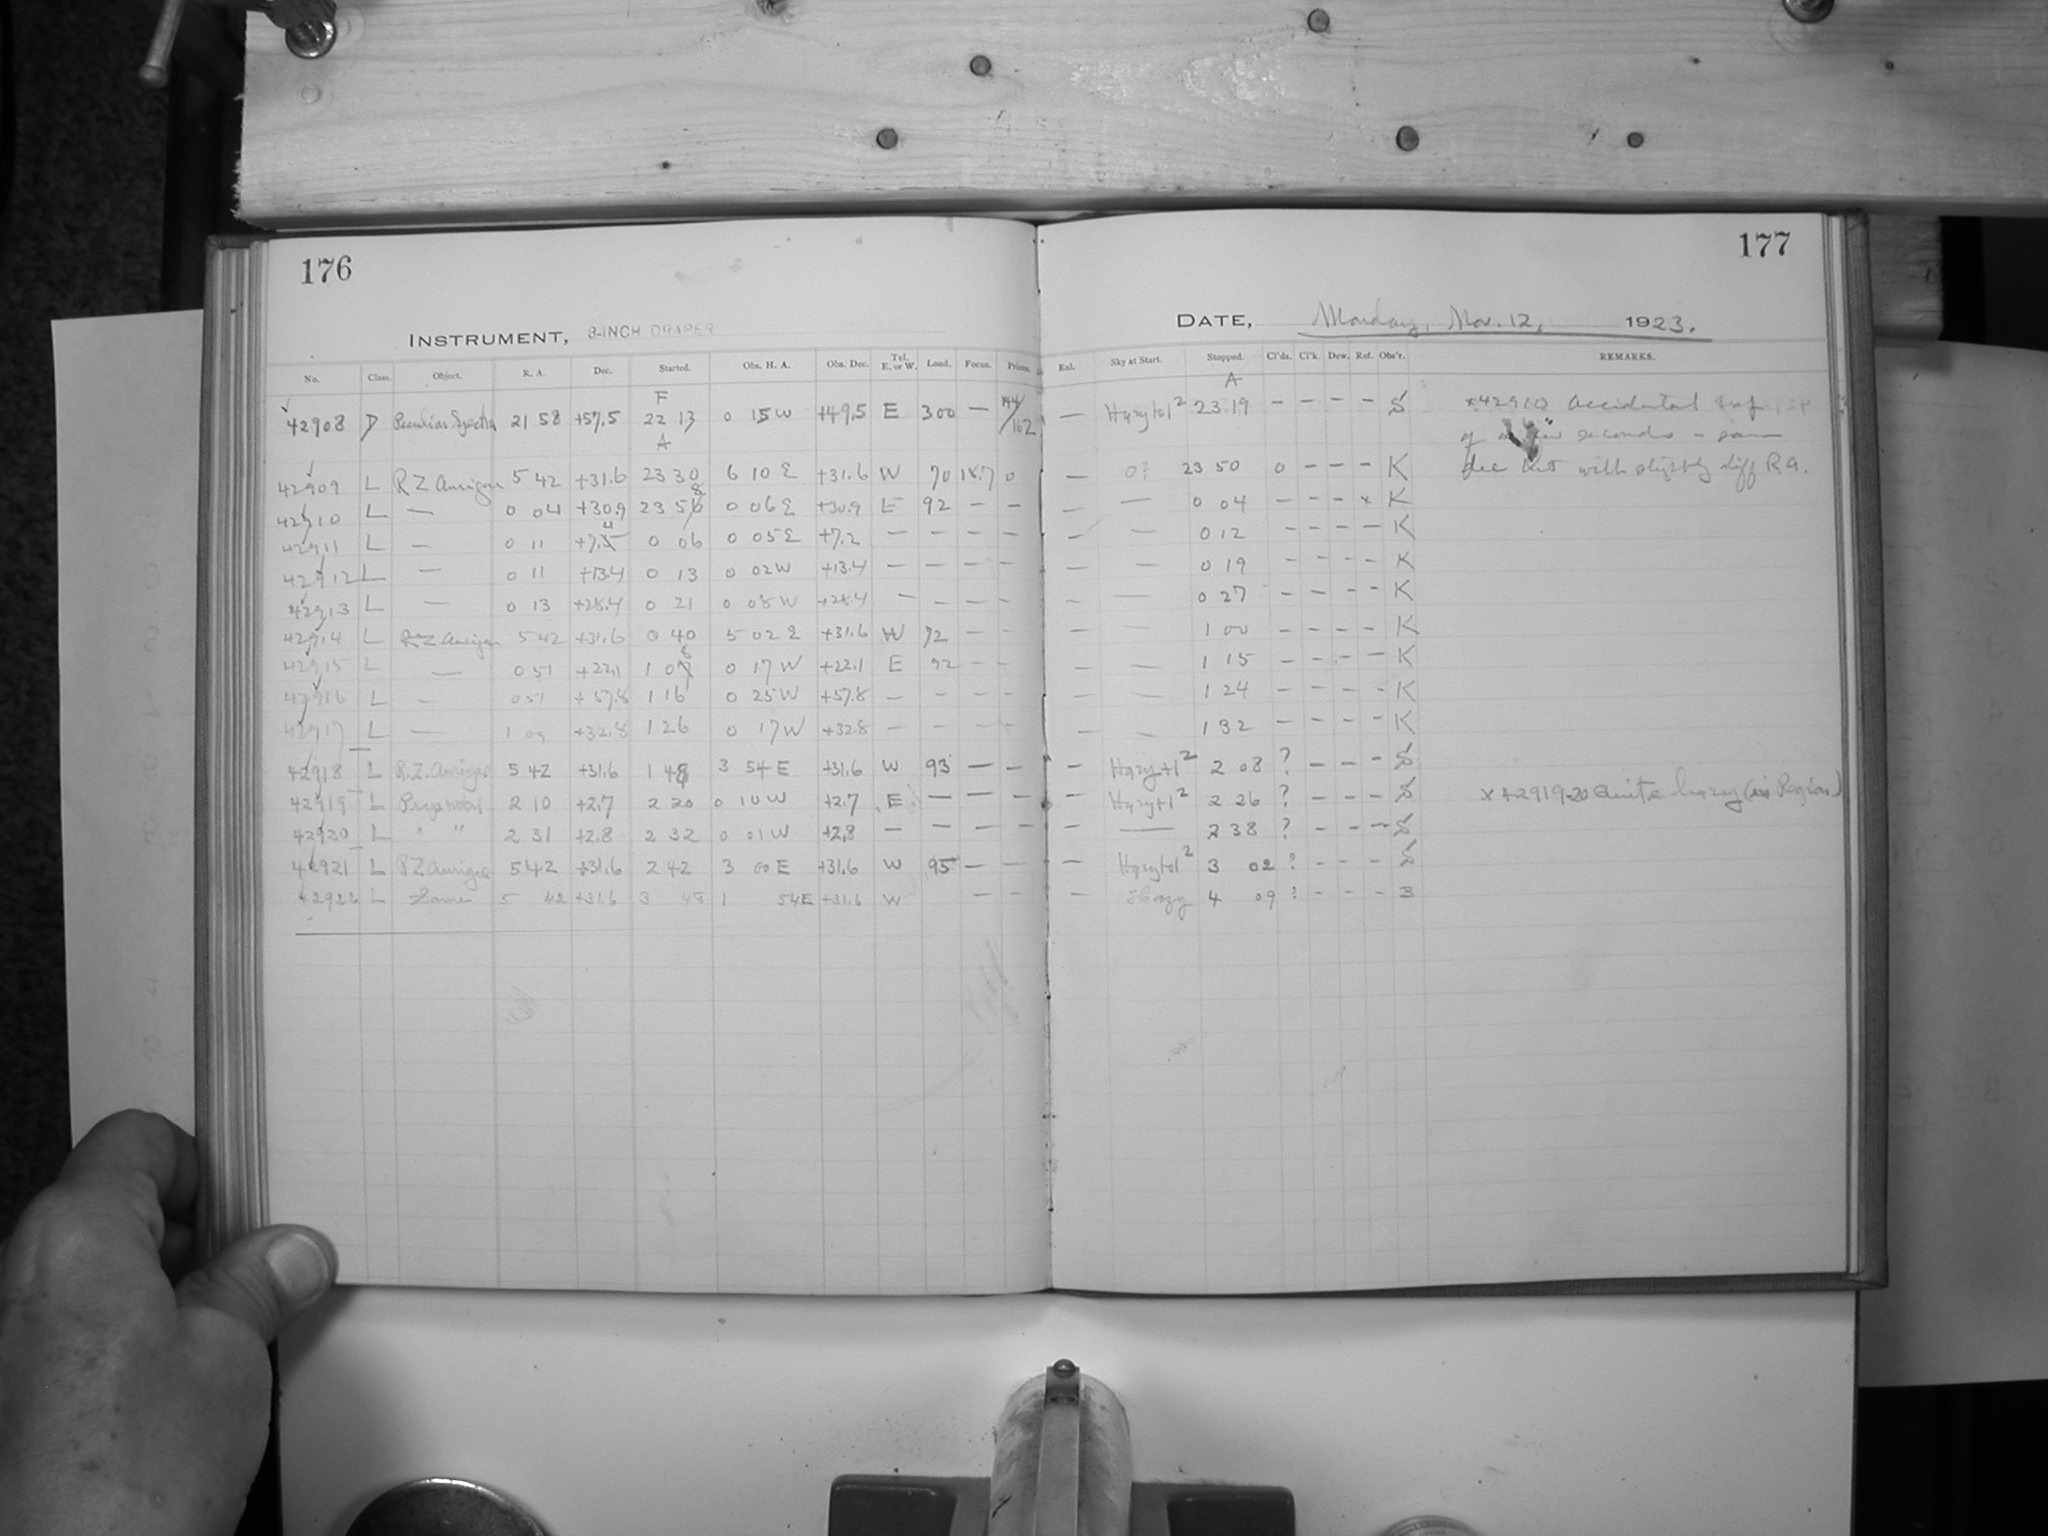 176
177
INSTRUMENT, 8-INCH DRAPER
DATE, Monday, Nov. 12, 1923.
No. Class. Object. R. A. Dec. Started. Obs. H. A. Obs. Dec. Tel. E. or W. Load. Focus. Prisms. Exl. Sky at Start. Stopped. Cl'ds. Cl'k. Dew. Ref. Obs'r. REMARKS.
F A
42908 D Peculiar Spectra 21 58 +57.5 22 13 0 15 W +49.5 E 300 — — 23 19 - - - - S accidental
A
of a few seconds - same
42909 L RZ Aurigae 5 42 +31.6 23 30 6 10 E +31.6 W 70 18.7 0 — 0? 23 50 0 - - - K dec but with slightly diff R.A.
42910 L — 0 04 +30.9 23 58 0 06 E +30.9 E 92 - - — — 0 04 - - - x K
42911 L — 0 11 0 06 0 05 E +7.2 — — — — — — 0 12 - - - - K
42912 L — 0 11 +13.4 0 13 0 02 W +13.4 — — — — — — 0 19 - - - - K
42913 L — 0 13 +28.4 0 21 0 08 W +28.4 — — — — — — 0 27 - - - - K
42914 L RZ Aurigae 5 42 +31.6 0 40 5 02 E +31.6 W 72 - - — — 1 00 - - - - K
42915 L — 0 51 +22.1 1 08 0 17 W +22.1 E 92 - - — — 1 15 - - - - K
42916 L — 0 51 +57.8 1 16 0 25 W +57.8 — — — — — — 1 24 - - - - K
42917 L — 1 09 +32.8 1 26 0 17 W +32.8 — — — — — — 1 32 - - - - K
42918 L R.Z. Aurigae 5 42 +31.6 1 48 3 54 E +31.6 W 93 — — — Hazy+1² 2 08 ? - - - S
42919 L 2 10 +2.7 2 20 0 10 W +2.7 E — — — — Hazy+1² 2 26 ? - - - S x 42919-20 Quite hazy (in Region)
42920 L " " 2 31 +2.8 2 32 0 01 W +2.8 — — — — — — 2 38 ? - - - S
42921 L RZ Aurigae 5 42 +31.6 2 42 3 00 E +31.6 W 95 — — — 3 02 ? - - - S
42922 L Same 5 42 +31.6 3 48 1 54 E +31.6 W — — Hazy 4 09 ? - - - B